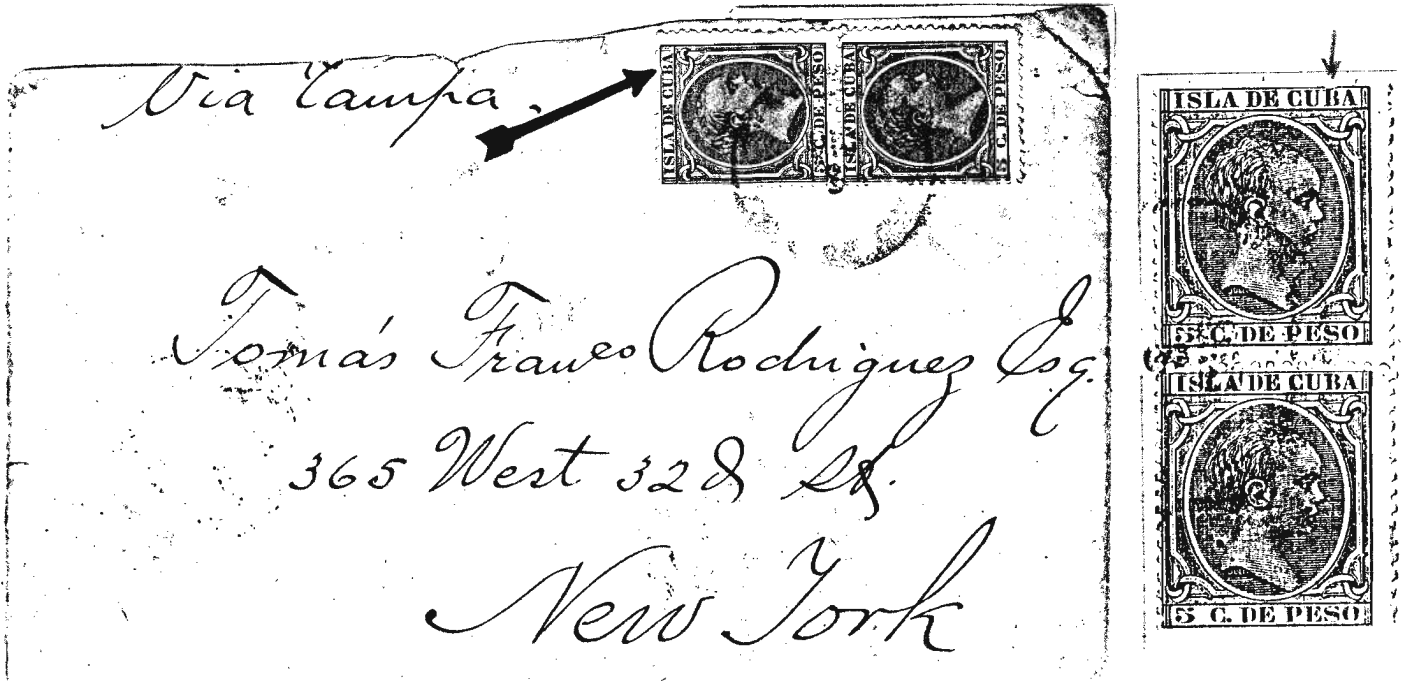 Via Tampa.
ISLA DE CUBA
5 C. DE PESO
ISLA DE CUBA
5 C. DE PESO
Tomás Franco Rodriguez Esq.
365 West 32d St.
New York
ISLA DE CUBA
5 C. DE PESO
ISLA DE CUBA
5 C. DE PESO